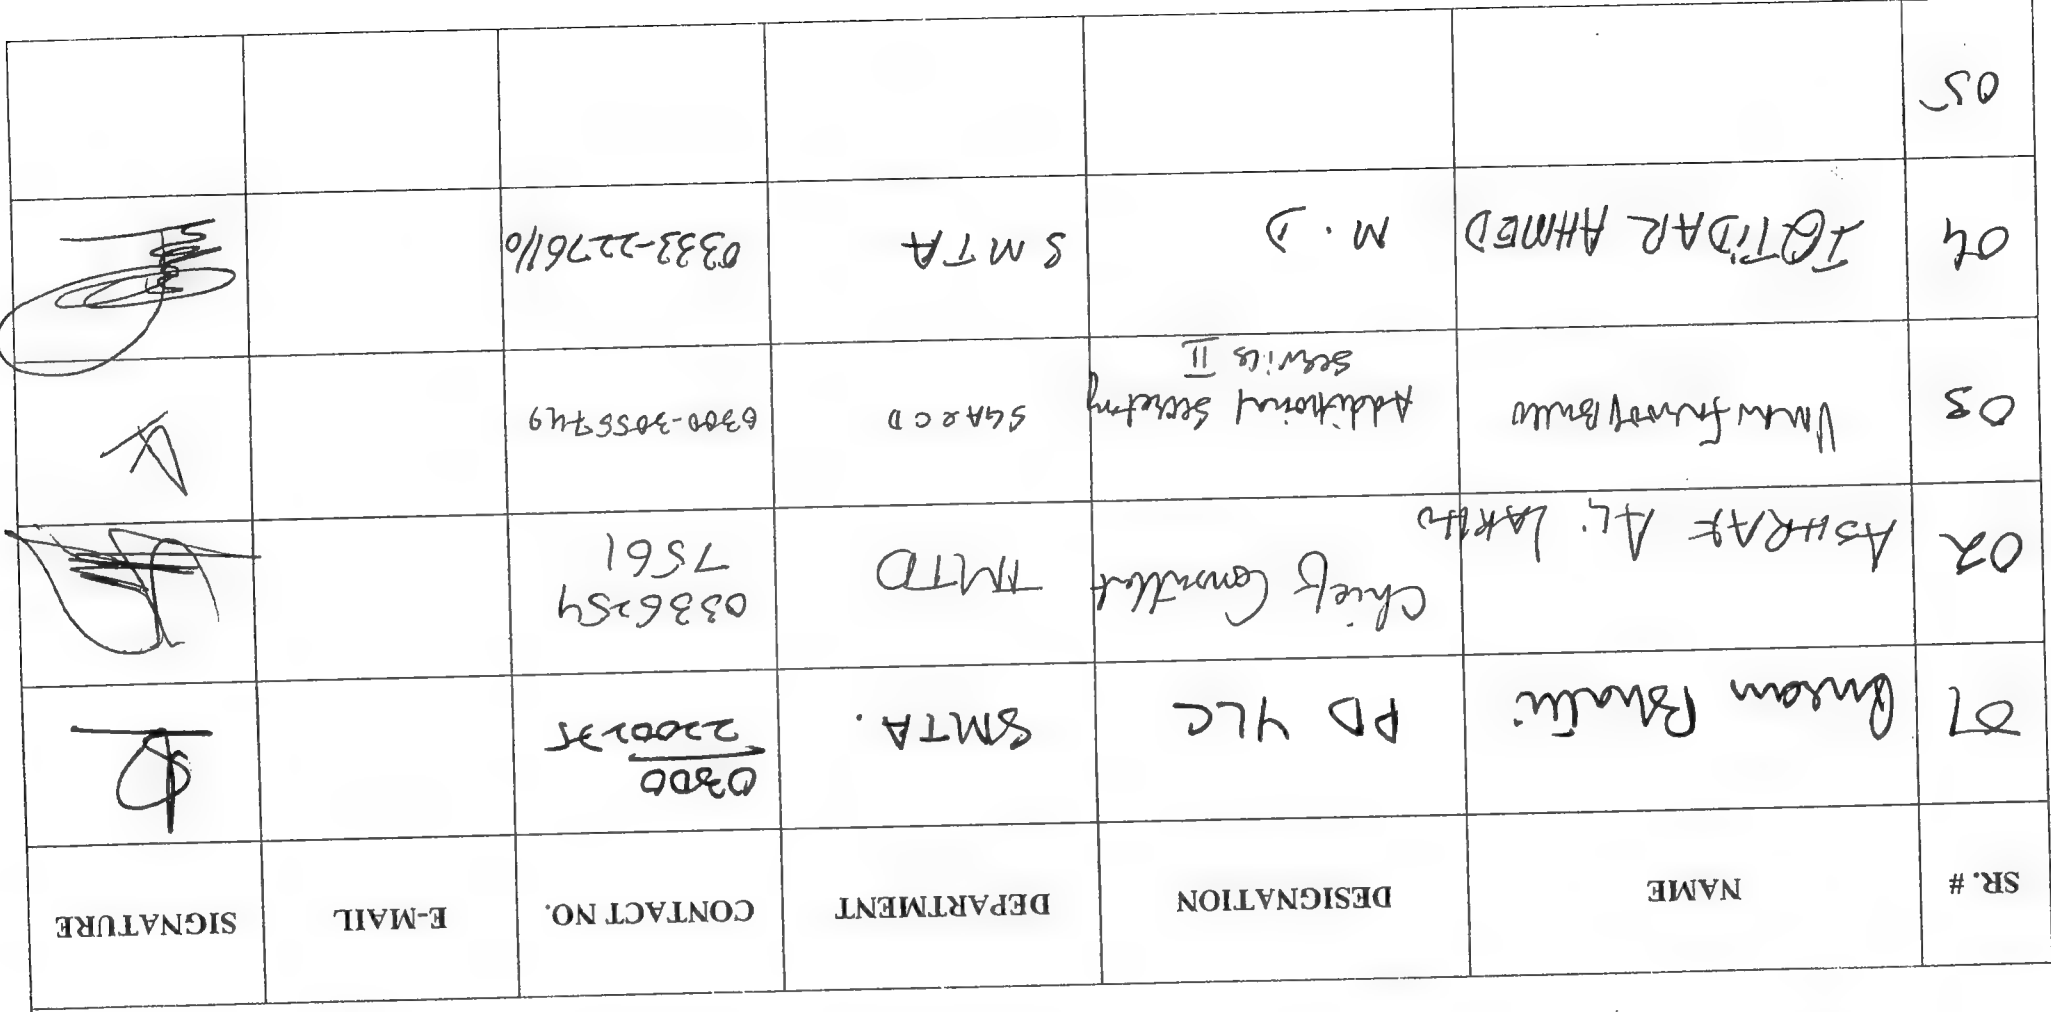 SR. # NAME DESIGNATION DEPARTMENT CONTACT NO. E-MAIL SIGNATURE
01 Bhatti PD YLC SMTA. 0300
2200275
02 ASHRAF ALi Chief Consultant TMTD 0336254
7561
03 Additional Secretary SGA&CD 0300-3055749
Services II
04 IQTIDAR AHMED M.D SMTA 0333-2276110
05